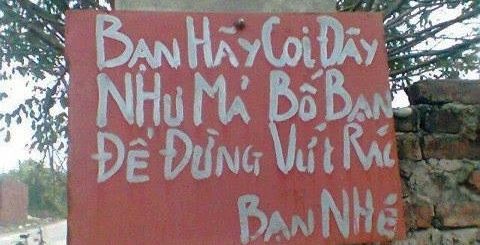 BẠN HÃY COI ĐÂY
NHƯ MẢ BỐ BẠN
ĐỂ ĐỪNG VỨT RÁC
BẠN NHÉ